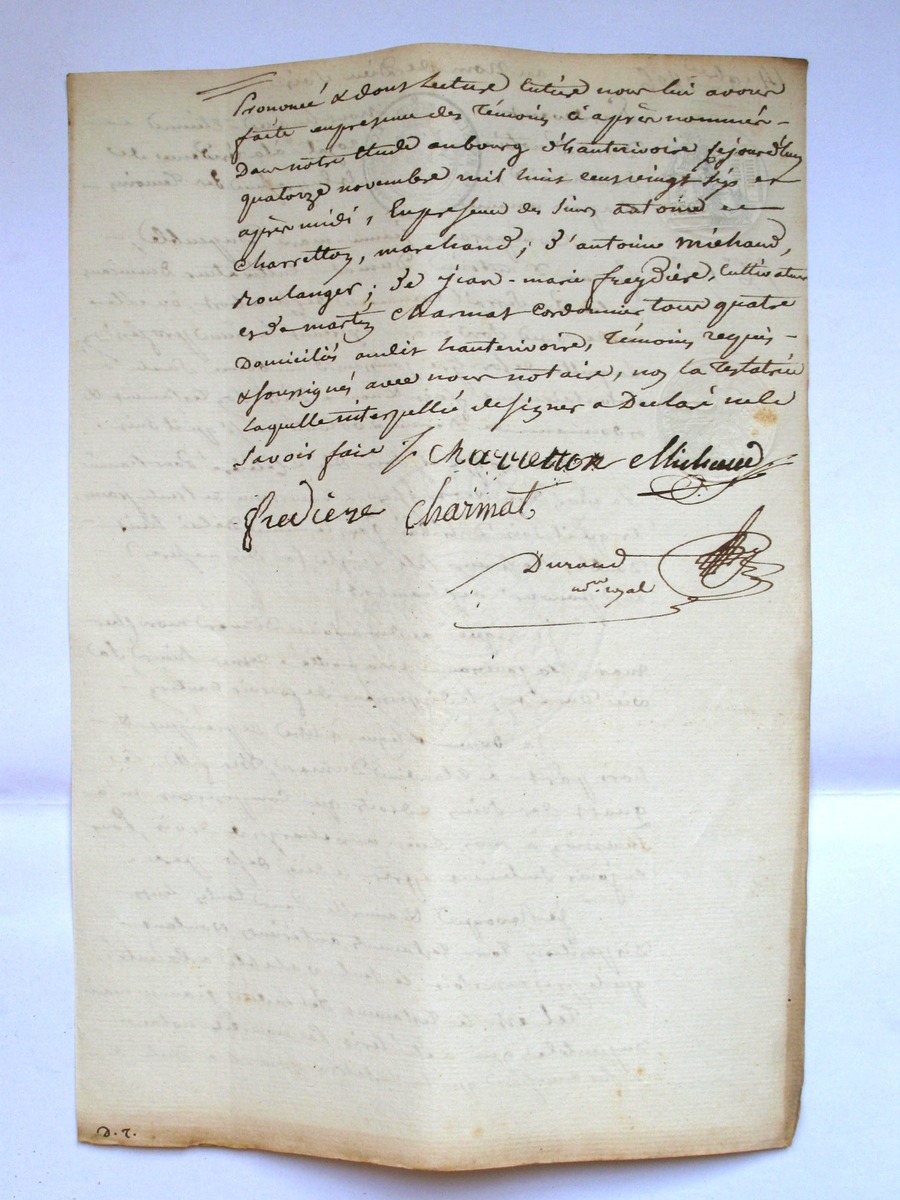 Prononcé & dont Lecture Entière nous lui avons
faite en presence des Témoins ci après nommés -
Dans notre étude au bourg d'hauterivoire cejourd'huy
quatorze novembre mil huit cent vingt six et
après midi, En presence des sieurs antoine
Charretton, marchand; d'antoine michaud,
Boulanger; de jean-marie freydière, Cultivateur
et de martin Charmat Cordonnier tous quatre
Domiciliés audit hauterivoire, Témoins requis -
& soussignés avec nous notaire, non la Testatrice
laquelle interpellée de signer a Declaré ne le
Savoir faire /. Charretton Michaud
fredière Charmat
Durand
nre. royal
D. r.